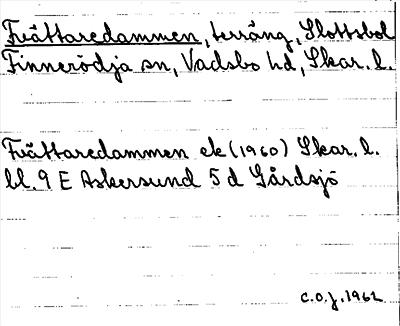 Tvättaredammen, terräng, Slottsbol
Finnerödja sn, Vadsbo hd, Skar. l.
Tvättaredammen ek (1960) Skar. l.
bl. 9 E Askersund 5 d Gårdsjö
C.O.J. 1962